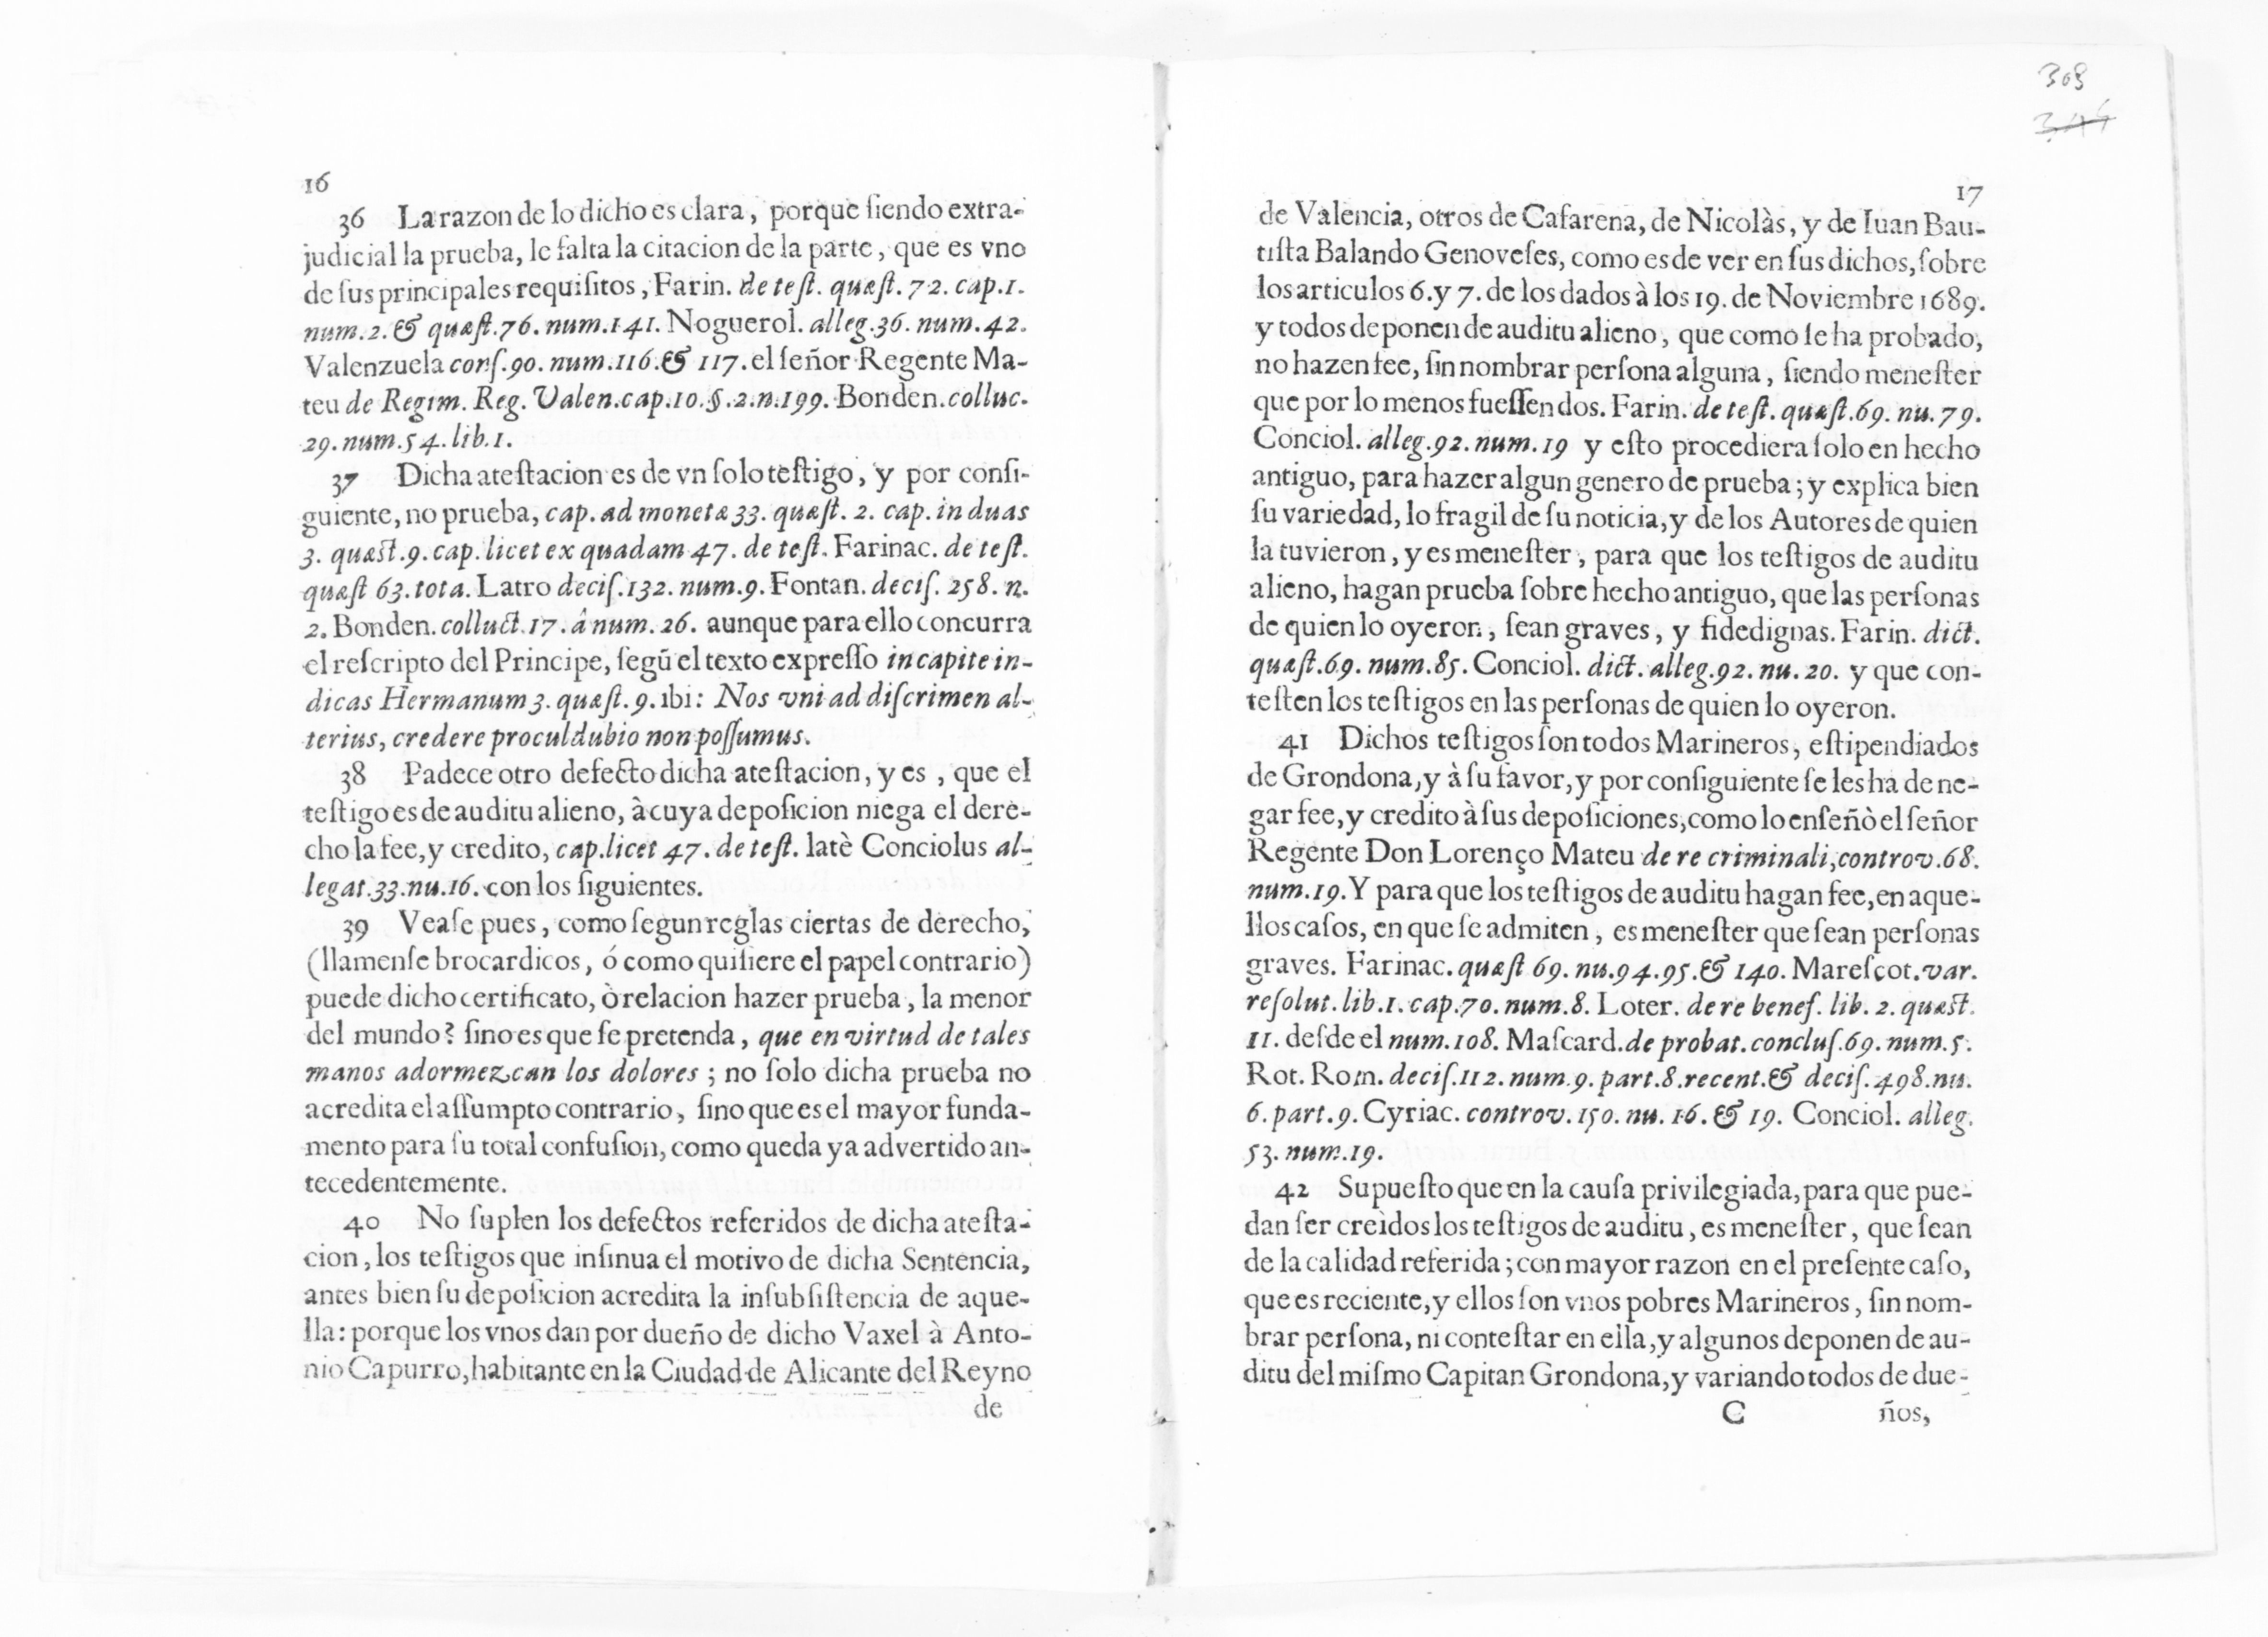 16
36 La razon de lo dicho es clara, porque ſiendo extra-
judicial la prueba, le falta la citacion de la parte, que es vno
de ſus principales requiſitos, Farin. de teſt. quæſt. 72. cap.1.
num.2. & quæſt.76. num.141. Noguerol. alleg.36. num.42.
Valenzuela conſ.90. num.116.& 117. el ſeñor Regente Ma-
teu de Regim. Reg. Valen.cap.10.§.2.n.199. Bonden. colluc.
29.num.54.lib.1.
37 Dicha ateſtacion es de vn ſolo teſtigo, y por conſi-
guiente, no prueba, cap. ad monetæ 33. quæſt. 2. cap. in duas
3. quæst.9.cap. licet ex quadam 47. de teſt. Farinac. de teſt.
quæſt 63.tota. Latro deciſ.132. num.9. Fontan. deciſ. 258. n.
2. Bonden. colluct.17. â num. 26. aunque para ello concurra
el reſcripto del Principe, ſegũ el texto expreſſo in capite in-
dicas Hermanum 3. quæſt. 9. ibi: Nos vni ad diſcrimen al-
terius, credere procul dubio non poſſumus.
38 Padece otro defecto dicha ateſtacion, y es, que el
teſtigo es de auditu alieno, à cuya depoſicion niega el dere-
cho la fee, y credito, cap.licet 47. de teſt. latè Conciolus al-
legat.33.nu.16. con los ſiguientes.
39 Veaſe pues, como ſegun reglas ciertas de derecho,
(llamenſe brocardicos, ó como quiſiere el papel contrario)
puede dicho certificato, ò relacion hazer prueba, la menor
del mundo? ſino es que ſe pretenda, que en virtud de tales
manos adormezcan los dolores; no ſolo dicha prueba no
acredita el aſſumpto contrario, ſino que es el mayor funda-
mento para ſu total confuſion, como queda ya advertido an-
tecedentemente.
40 No ſuplen los defectos referidos de dicha ateſta-
cion, los teſtigos que inſinua el motivo de dicha Sentencia,
antes bien ſu depoſicion acredita la inſubſiſtencia de aque-
lla: porque los vnos dan por dueño de dicho Vaxel à Anto-
nio Capurro, habitante en la Ciudad de Alicante del Reyno
de
308
17
de Valencia, otros de Cafarena, de Nicolàs, y de Iuan Bau-
tiſta Balando Genoveſes, como es de ver en ſus dichos, ſobre
los articulos 6. y 7. de los dados à los 19. de Noviembre 1689.
y todos deponen de auditu alieno, que como ſe ha probado,
no hazen fee, ſin nombrar perſona alguna, ſiendo meneſter
que por lo menos fueſſen dos. Farin. de teſt. quæſt.69. nu. 79.
Conciol. alleg.92. num.19 y eſto procediera ſolo en hecho
antiguo, para hazer algun genero de prueba; y explica bien
ſu variedad, lo fragil de ſu noticia, y de los Autores de quien
la tuvieron, y es meneſter, para que los teſtigos de auditu
alieno, hagan prueba ſobre hecho antiguo, que las perſonas
de quien lo oyeron, ſean graves, y fidedignas. Farin. dict.
quæſt.69. num.85. Conciol. dict. alleg.92. nu. 20. y que con-
teſten los teſtigos en las perſonas de quien lo oyeron.
41 Dichos teſtigos ſon todos Marineros, eſtipendiados
de Grondona, y à ſu favor, y por conſiguiente ſe les ha de ne-
gar fee, y credito à ſus depoſiciones, como lo enſeñò el ſeñor
Regente Don Lorenço Mateu de re criminali, controv.68.
num.19. Y para que los teſtigos de auditu hagan fee, en aque-
llos caſos, en que ſe admiten, es meneſter que ſean perſonas
graves. Farinac. quæſt 69. nu.94.95.& 140. Mareſcot. var.
reſolut. lib.1. cap.70. num.8. Loter. de re benef. lib. 2. quæst.
11. deſde el num.108. Maſcard. de probat. concluſ.69. num.5.
Rot. Rom. deciſ.112. num.9. part.8.recent.& deciſ.498.nu.
6. part.9. Cyriac. controv.150. nu. 16. & 19. Conciol. alleg.
53. num.19.
42 Supueſto que en la cauſa privilegiada, para que pue-
dan ſer creìdos los teſtigos de auditu, es meneſter, que ſean
de la calidad referida; con mayor razon en el preſente caſo,
que es reciente, y ellos ſon vnos pobres Marineros, ſin nom-
brar perſona, ni conteſtar en ella, y algunos deponen de au-
ditu del miſmo Capitan Grondona, y variando todos de due-
C ños,